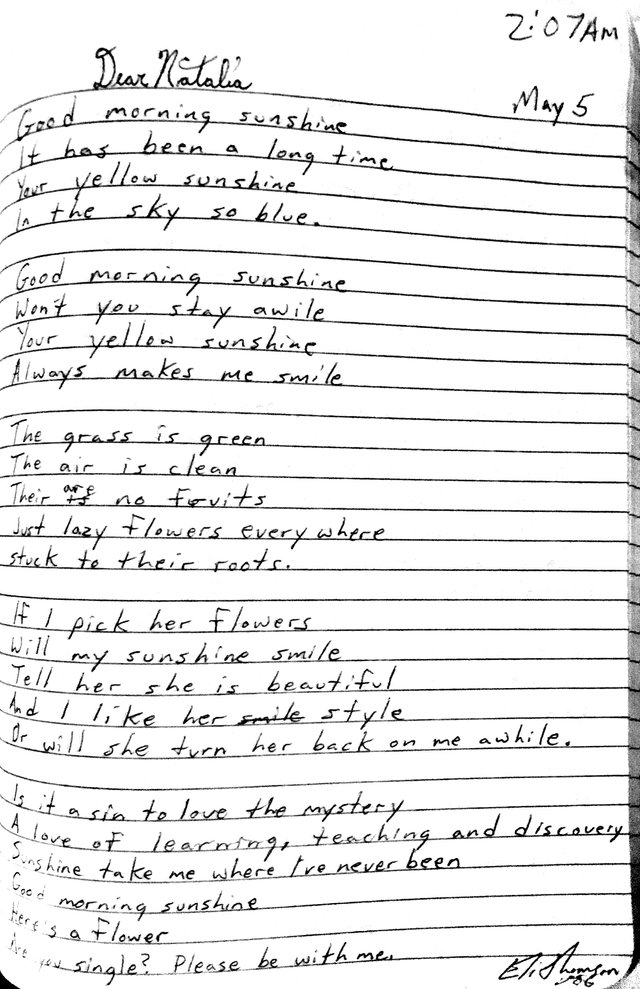 2:07AM
Dear Natalia
May 5
Good morning sunshine
It has been a long time
Your yellow sunshine
In the sky so blue.
Good morning sunshine
Won't you stay awile
Your yellow sunshine
Always makes me smile
The grass is green
The air is clean
Their are no fruits
Just lazy flowers everywhere
stuck to their roots.
If I pick her flowers
Will my sunshine smile
Tell her she is beautiful
And I like her smile style
Or will she turn her back on me awhile.
Is it a sin to love the mystery
A love of learning, teaching and discovery
Sunshine take me where I've never been
Good morning sunshine
Here's a flower
Are you single? Please be with me.
Eli Thomson